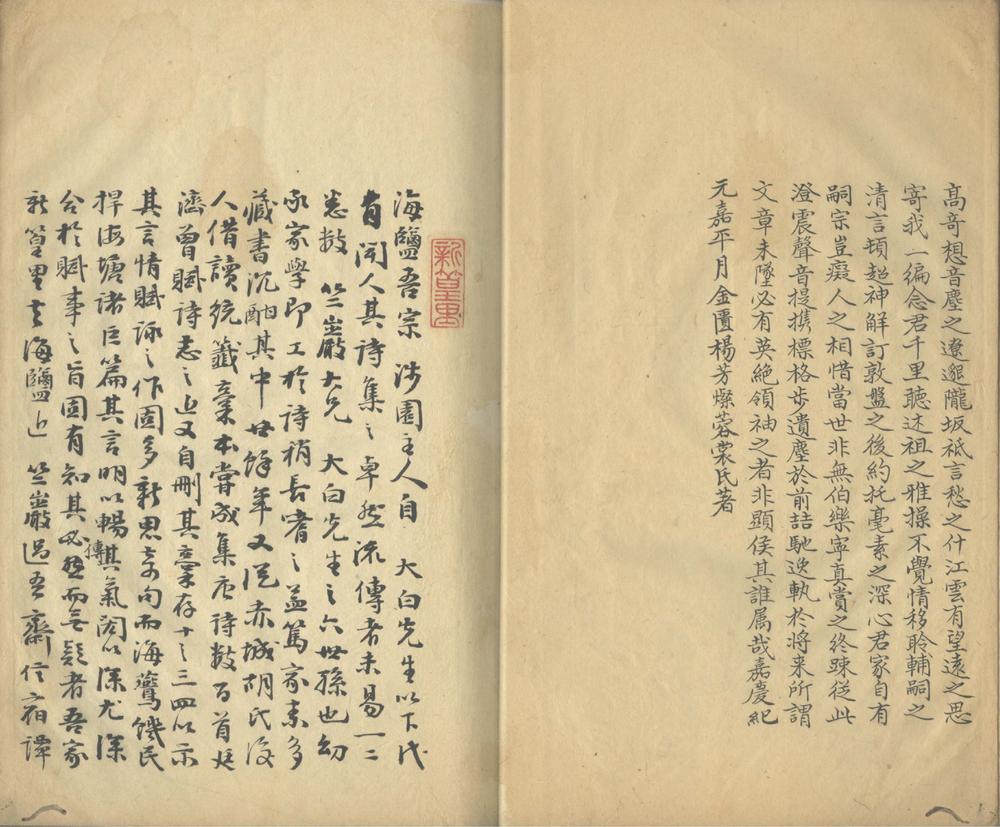 高奇想音塵之遼邈隴坂祗言愁之什江雲有望遠之思
寄我一編念君千里聽述祖之雅操不覺情移聆輔嗣之
清言頓超神解訂敦盤之後約托毫素之深心君家自有
嗣宗豈癡人之相惜當世非無伯樂寧真賞之終踈從此
澄震聲音提攜標格步遺塵於前喆馳逸軌於將来所謂
文章未墜必有英絶領袖之者非顯侯其誰属哉嘉慶紀
元嘉平月金匱楊芳燦蓉裳氏著
海鹽吾宗涉園主人自大白先生以下代
有聞人其詩集之卓然流傳者未易一二
悉數竺巖大兄大白先生之六世孫也幼
承家學即工於詩稍長嗜之益篤家素多
藏書沉酣其中廿餘年又從赤城胡氏後
人借讀統籤稾本嘗成集唐詩數百首廷
濟曾賦詩志之近又自刪其稾存十之三四以示
其言情賦詠之作固多新思奇句而海鶩饑民
捍海塘諸巨篇其言明以暢其氣閎以深尤深
合於賦事之旨固有知其必傳而無疑者吾家
新篁里去海鹽近竺巖過吾齋信宿譚